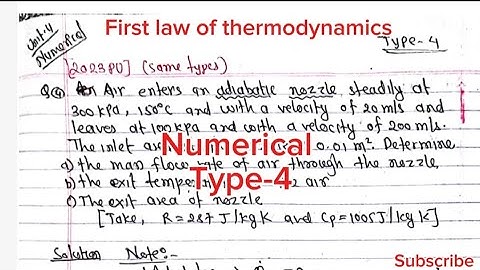 First law of thermodynamics
Unit-4
Numerical
Type-4
[2023PU] (Same types)
Air enters an adiabatic nozzle steadily at
300kPa, 150°C and with a velocity of 20m/s and
leaves at 100kPa and with a velocity of 200m/s.
The inlet 0.01 m². Determine
Numerical
a) the mass flow rate of air through the nozzle
b) the exit air
Type-4
c) The exit area of nozzle
[Take, R=287 J/kgK and Cp=1005J/kgK]
Solution Note:-
Subscribe